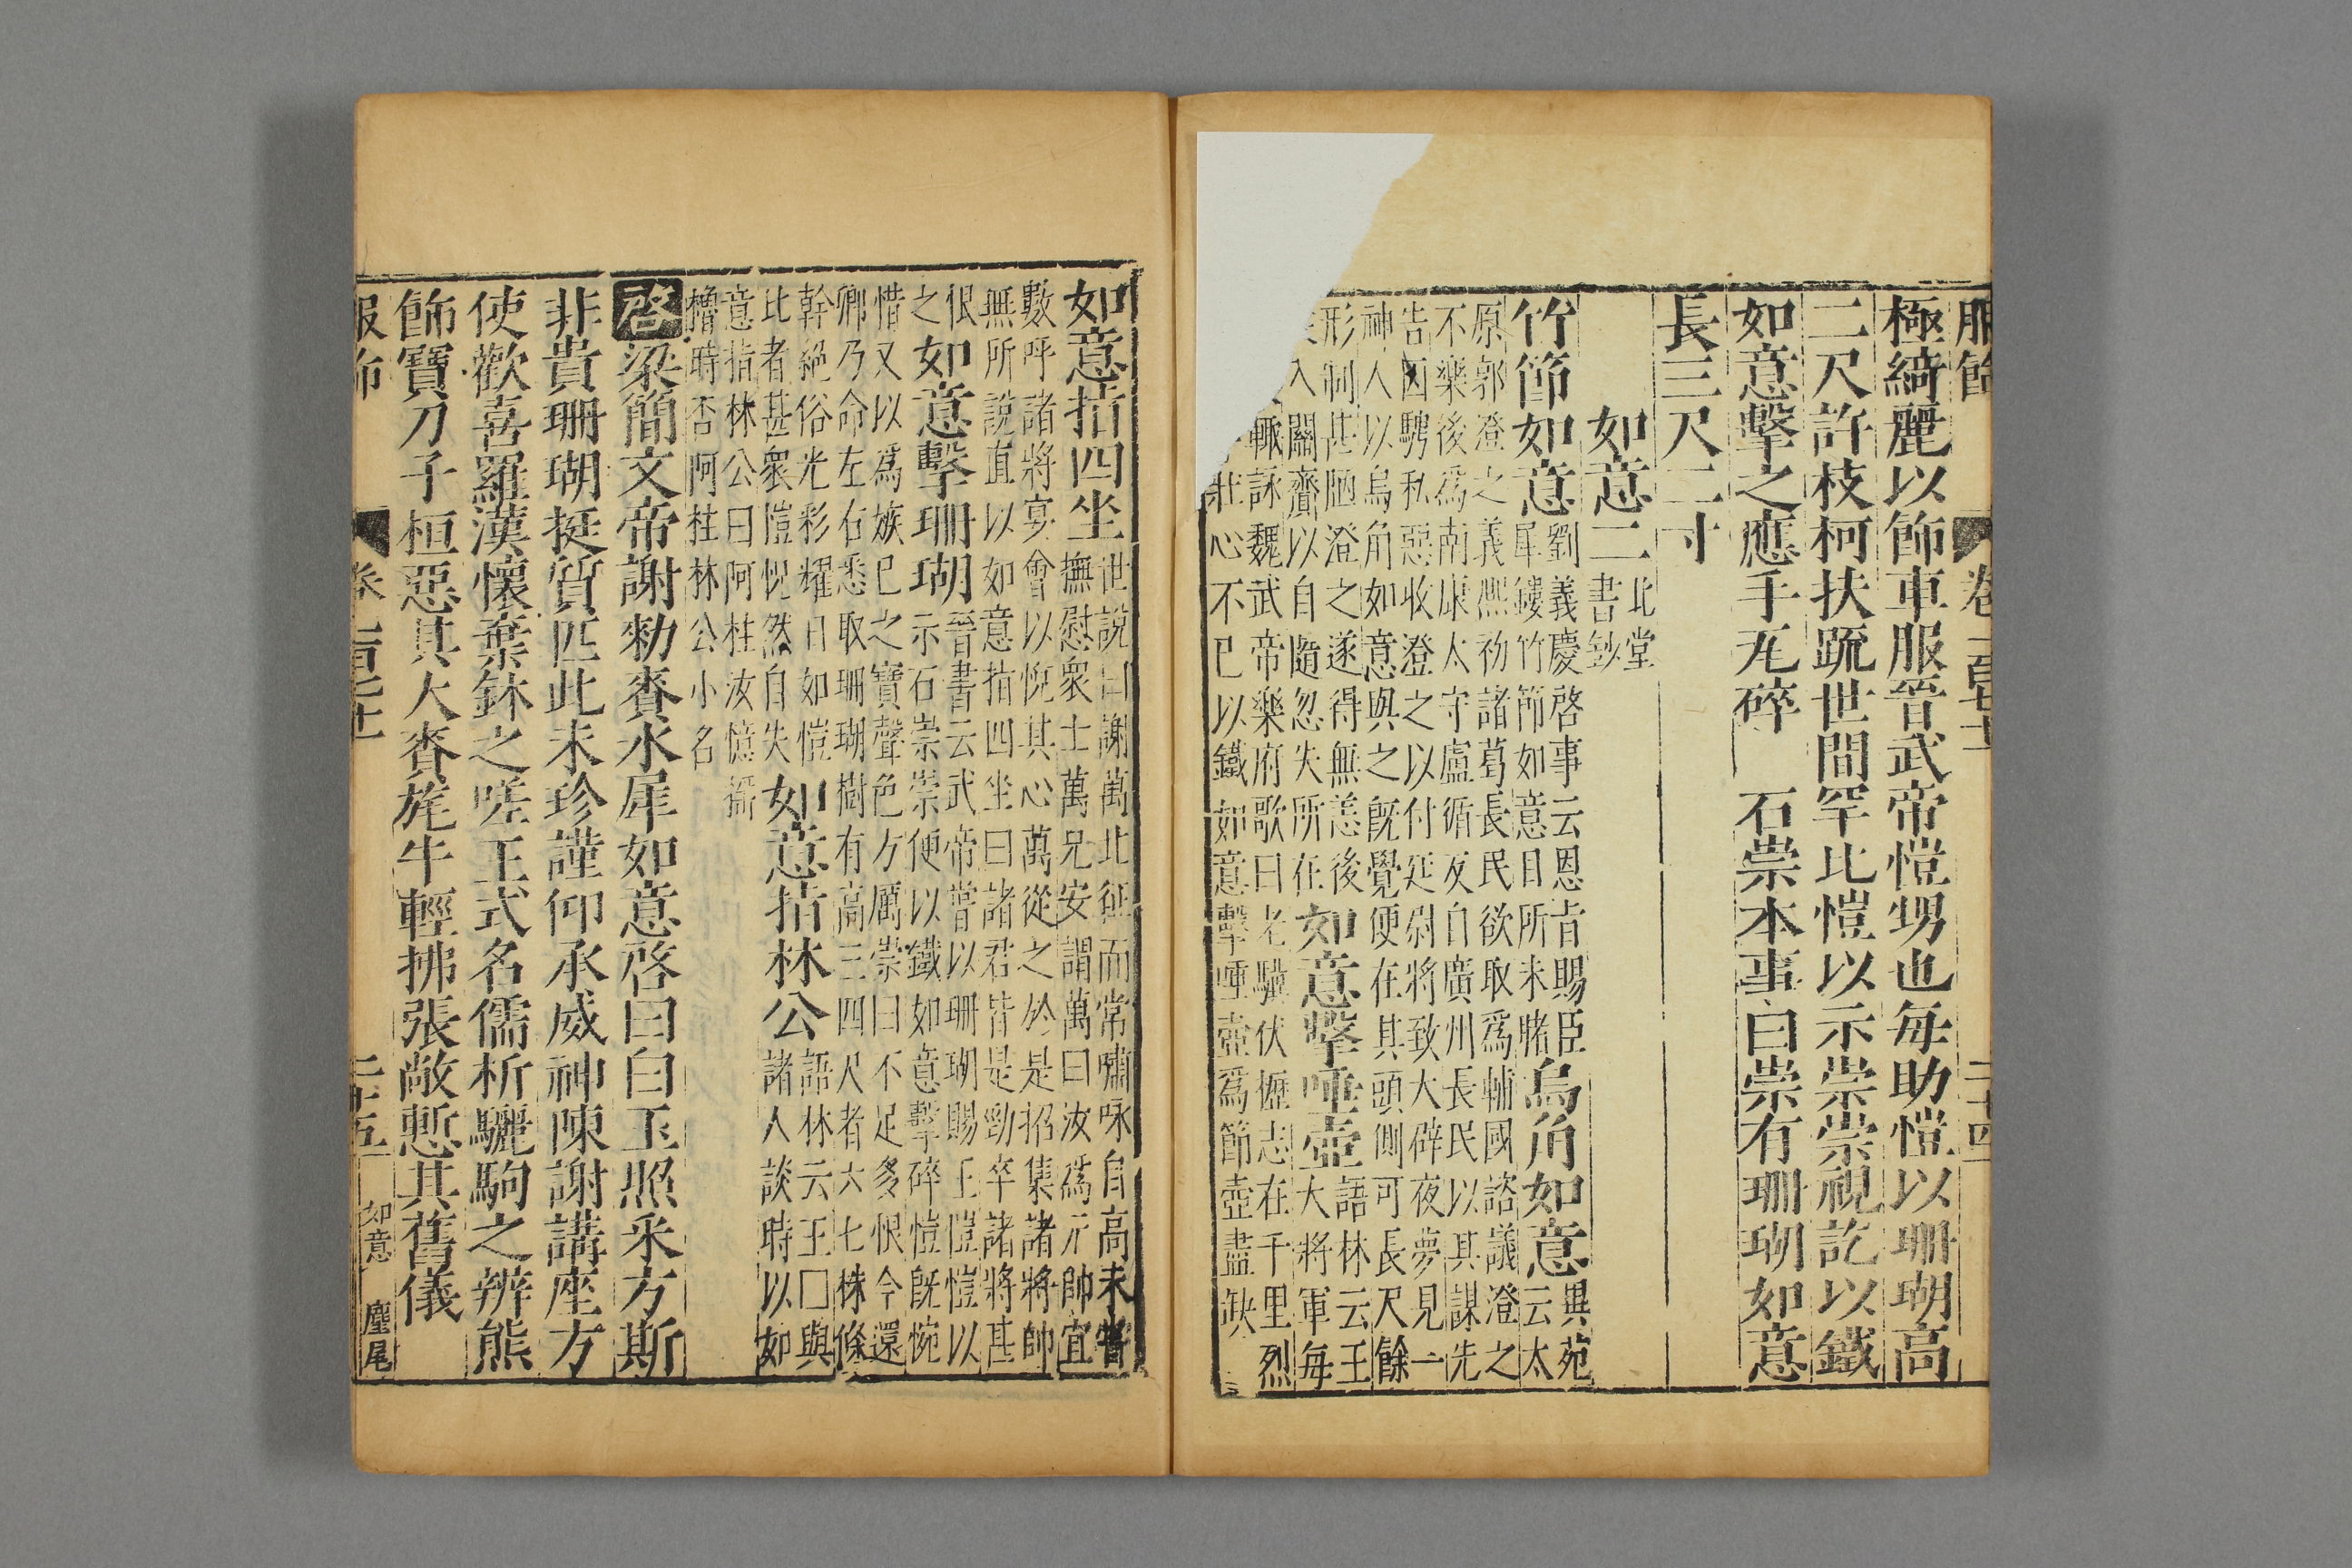 服飾 卷一百七十 二十四
極綺麗以飾車服晉武帝愷甥也每助愷以珊瑚高
二尺許枝柯扶疏世間罕比愷以示崇崇視訖以鐵
如意擊之應手瓦碎 石崇本事曰崇有珊瑚如意
長三尺二寸
如意二
北堂
書鈔
竹節如意
劉義慶啓事云恩旨賜臣
犀鏤竹節如意目所未睹
烏角如意
異苑
云太
原郭澄之義熙初諸葛長民欲取爲輔國諮議澄之
不樂後爲南康太守盧循反自廣州長民以其謀先
告因騁私惡收澄之以付延尉將致大辟夜夢見一
神人以烏角如意與之既覺便在其頭側可長尺餘
形制甚陋澄之遂得無恙後
入關齎以自隨忽失所在
如意擊唾壺
語林云王
大將軍每
輒詠魏武帝樂府歌曰老驥伏櫪志在千里烈
壯心不已以鐵如意擊唾壺爲節壺盡缺
如意指四坐
世說曰謝萬北征而常嘯咏自高未嘗
撫慰衆士萬兄安謂萬曰汝爲元帥宜
數呼諸將宴會以悅其心萬從之於是招集諸將帥
無所說直以如意指四坐曰諸君皆是勁卒諸將甚
恨
之
如意擊珊瑚
晉書云武帝嘗以珊瑚賜王愷愷以
示石崇崇便以鐵如意擊碎愷既惋
惜又以爲嫉已之寶聲色方厲崇曰不足多恨今還
卿乃命左右悉取珊瑚樹有高三四尺者六七株條
幹絕俗光彩耀日如愷
比者甚衆愷怳然自失
如意指林公
語林云王囗與
諸人談時以如
意指林公曰阿柱汝憶搖
櫓時否阿柱林公小名
啓梁簡文帝謝勑賚水犀如意啓曰白玉照采方斯
非貴珊瑚挺質匹此未珍謹仰承威神陳謝講座方
使歡喜羅漢懷棄鉢之嗟王式名儒析驪駒之辨熊
飾寶刀子桓惡其大賚旄牛輕拂張敞慙其舊儀
服飾 卷一百七十 二十五 如意 麈尾